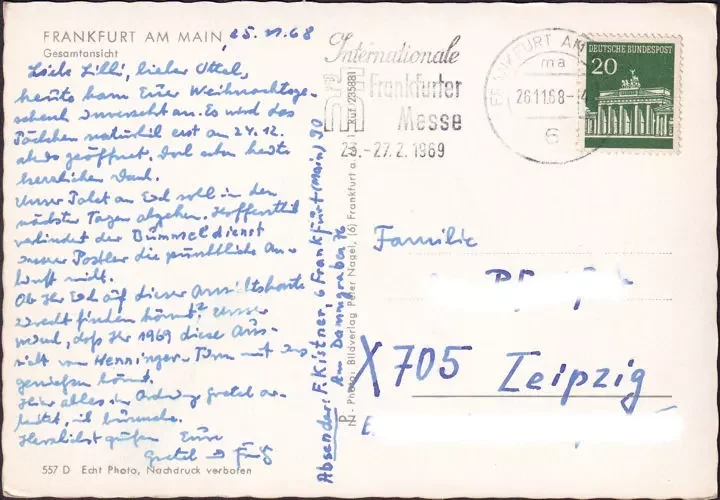 FRANKFURT AM MAIN, 25.11.68
Gesamtansicht
Liebe Lilli, lieber Ottel,
heute kam Euer Weihnachtsge-
schenk unversehrt an. Es wird das
Päckchen natürlich erst am 24.12.
abds geöffnet. Doch schon heute
herzlichen Dank.
Unser Paket an Euch soll in den
nächsten Tagen abgehen. Hoffentlich
verhindert der Bummeldienst
unserer Postler die pünktliche An-
kunft nicht.
Ob Ihr Euch auf dieser Ansichtskarte
zurecht finden könnt? Unser
, daß Ihr 1969 diese Aus-
sicht vom Henninger-Turm mit uns
genießen könnt.
Hier alles in Ordnung Gretel ar-
beitet, ich
Herzlichst grüßen Eure
Gretel Fritz
557 D Echt Photo, Nachdruck verboten
Absender: F. Kistner, 6 Frankfurt (Main) 70
Am Damngraben 76
NZ - Photo: Bildverlag Peter Nagel, (6) Frankfurt a. Ruf 235881
Internationale
Frankfurter
Messe
23.-27.2.1969
FRANKFURT AM
ma
26.11.68
6
DEUTSCHE BUNDESPOST
20
Familie
X 705 Leipzig